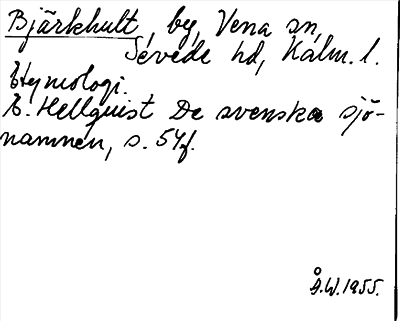 Bjärkhult, by, Vena sn,
Sevede hd, Kalm. l.
Etymologi.
E. Hellquist De svenska sjö-
namnen, s. 54f.
Å.W. 1955.